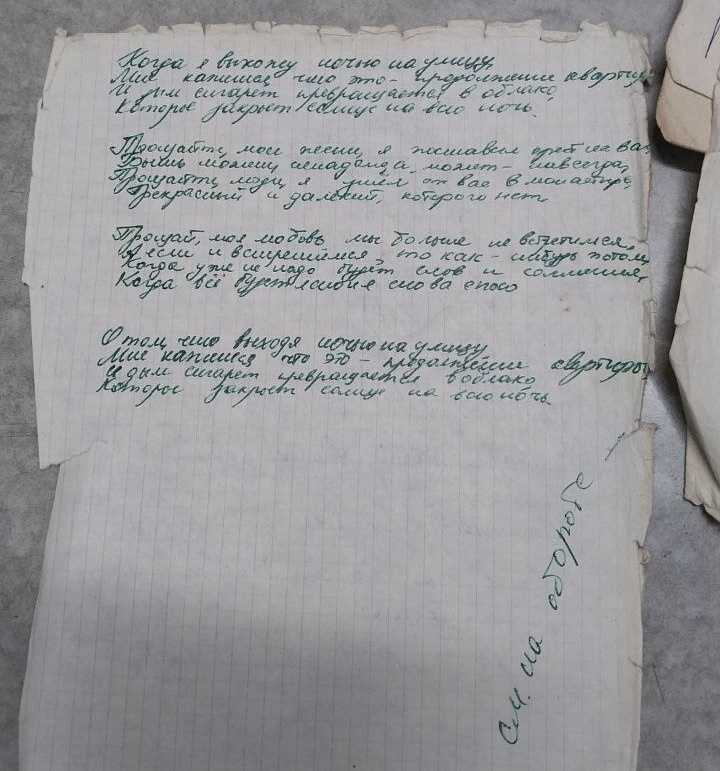 Когда я выхожу ночью на улицу
Мне кажется что это - продолжение квартиры
И дым сигарет превращается в облако,
Которое закроет солнце на всю ночь.
Прощайте, мои песни, я поставил крест на вас,
может - навсегда,
Прощайте, люди, я ушёл от вас в монастырь,
Прекрасный и далёкий, которого нет
Прощай, моя любовь мы больше не встретимся,
А если и встретимся, то как - нибудь потом,
Когда уже не надо будет слов и сомнения,
Когда всё будет снова спето
О том, что выходя ночью на улицу
Мне кажется что это - продолжение квартиры
И дым сигарет превращается в облако
Которое закроет солнце на всю ночь.
см. на обороте